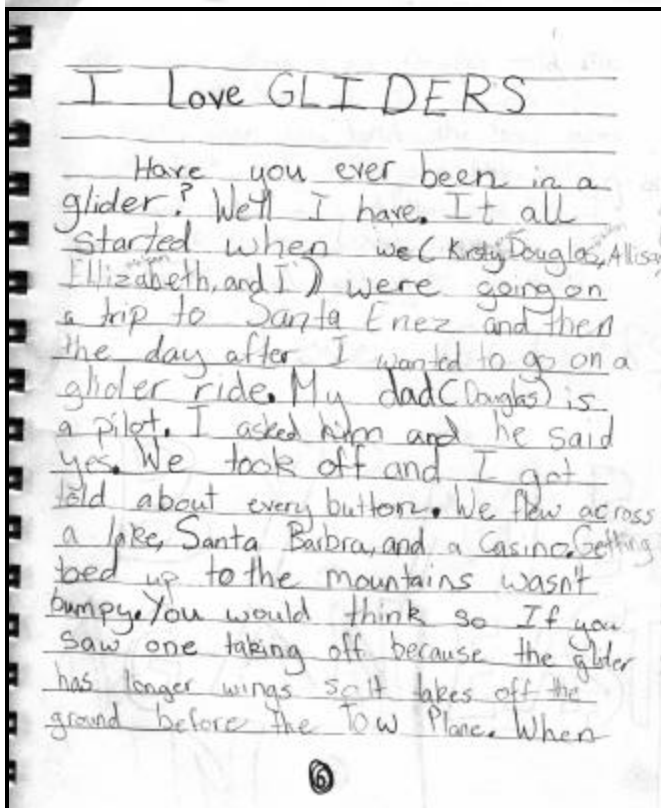 I Love GLIDERS
Have you ever been in a
glider? We'll I have. It all
started when we (Kirsty, Douglas, Allison,
Ellizabeth, and I) were going on
a trip to Santa Enez and then
the day after I wanted to go on a
glider ride. My dad (Douglas) is
a pilot. I asked him and he said
yes. We took off and I got
told about every button. We flew across
a lake, Santa Barbra, and a Casino. Getting
toed up to the mountains wasn't
bumpy. You would think so If you
saw one taking off because the glider
has longer wings so It takes off the
ground before the Tow Plane. When
6